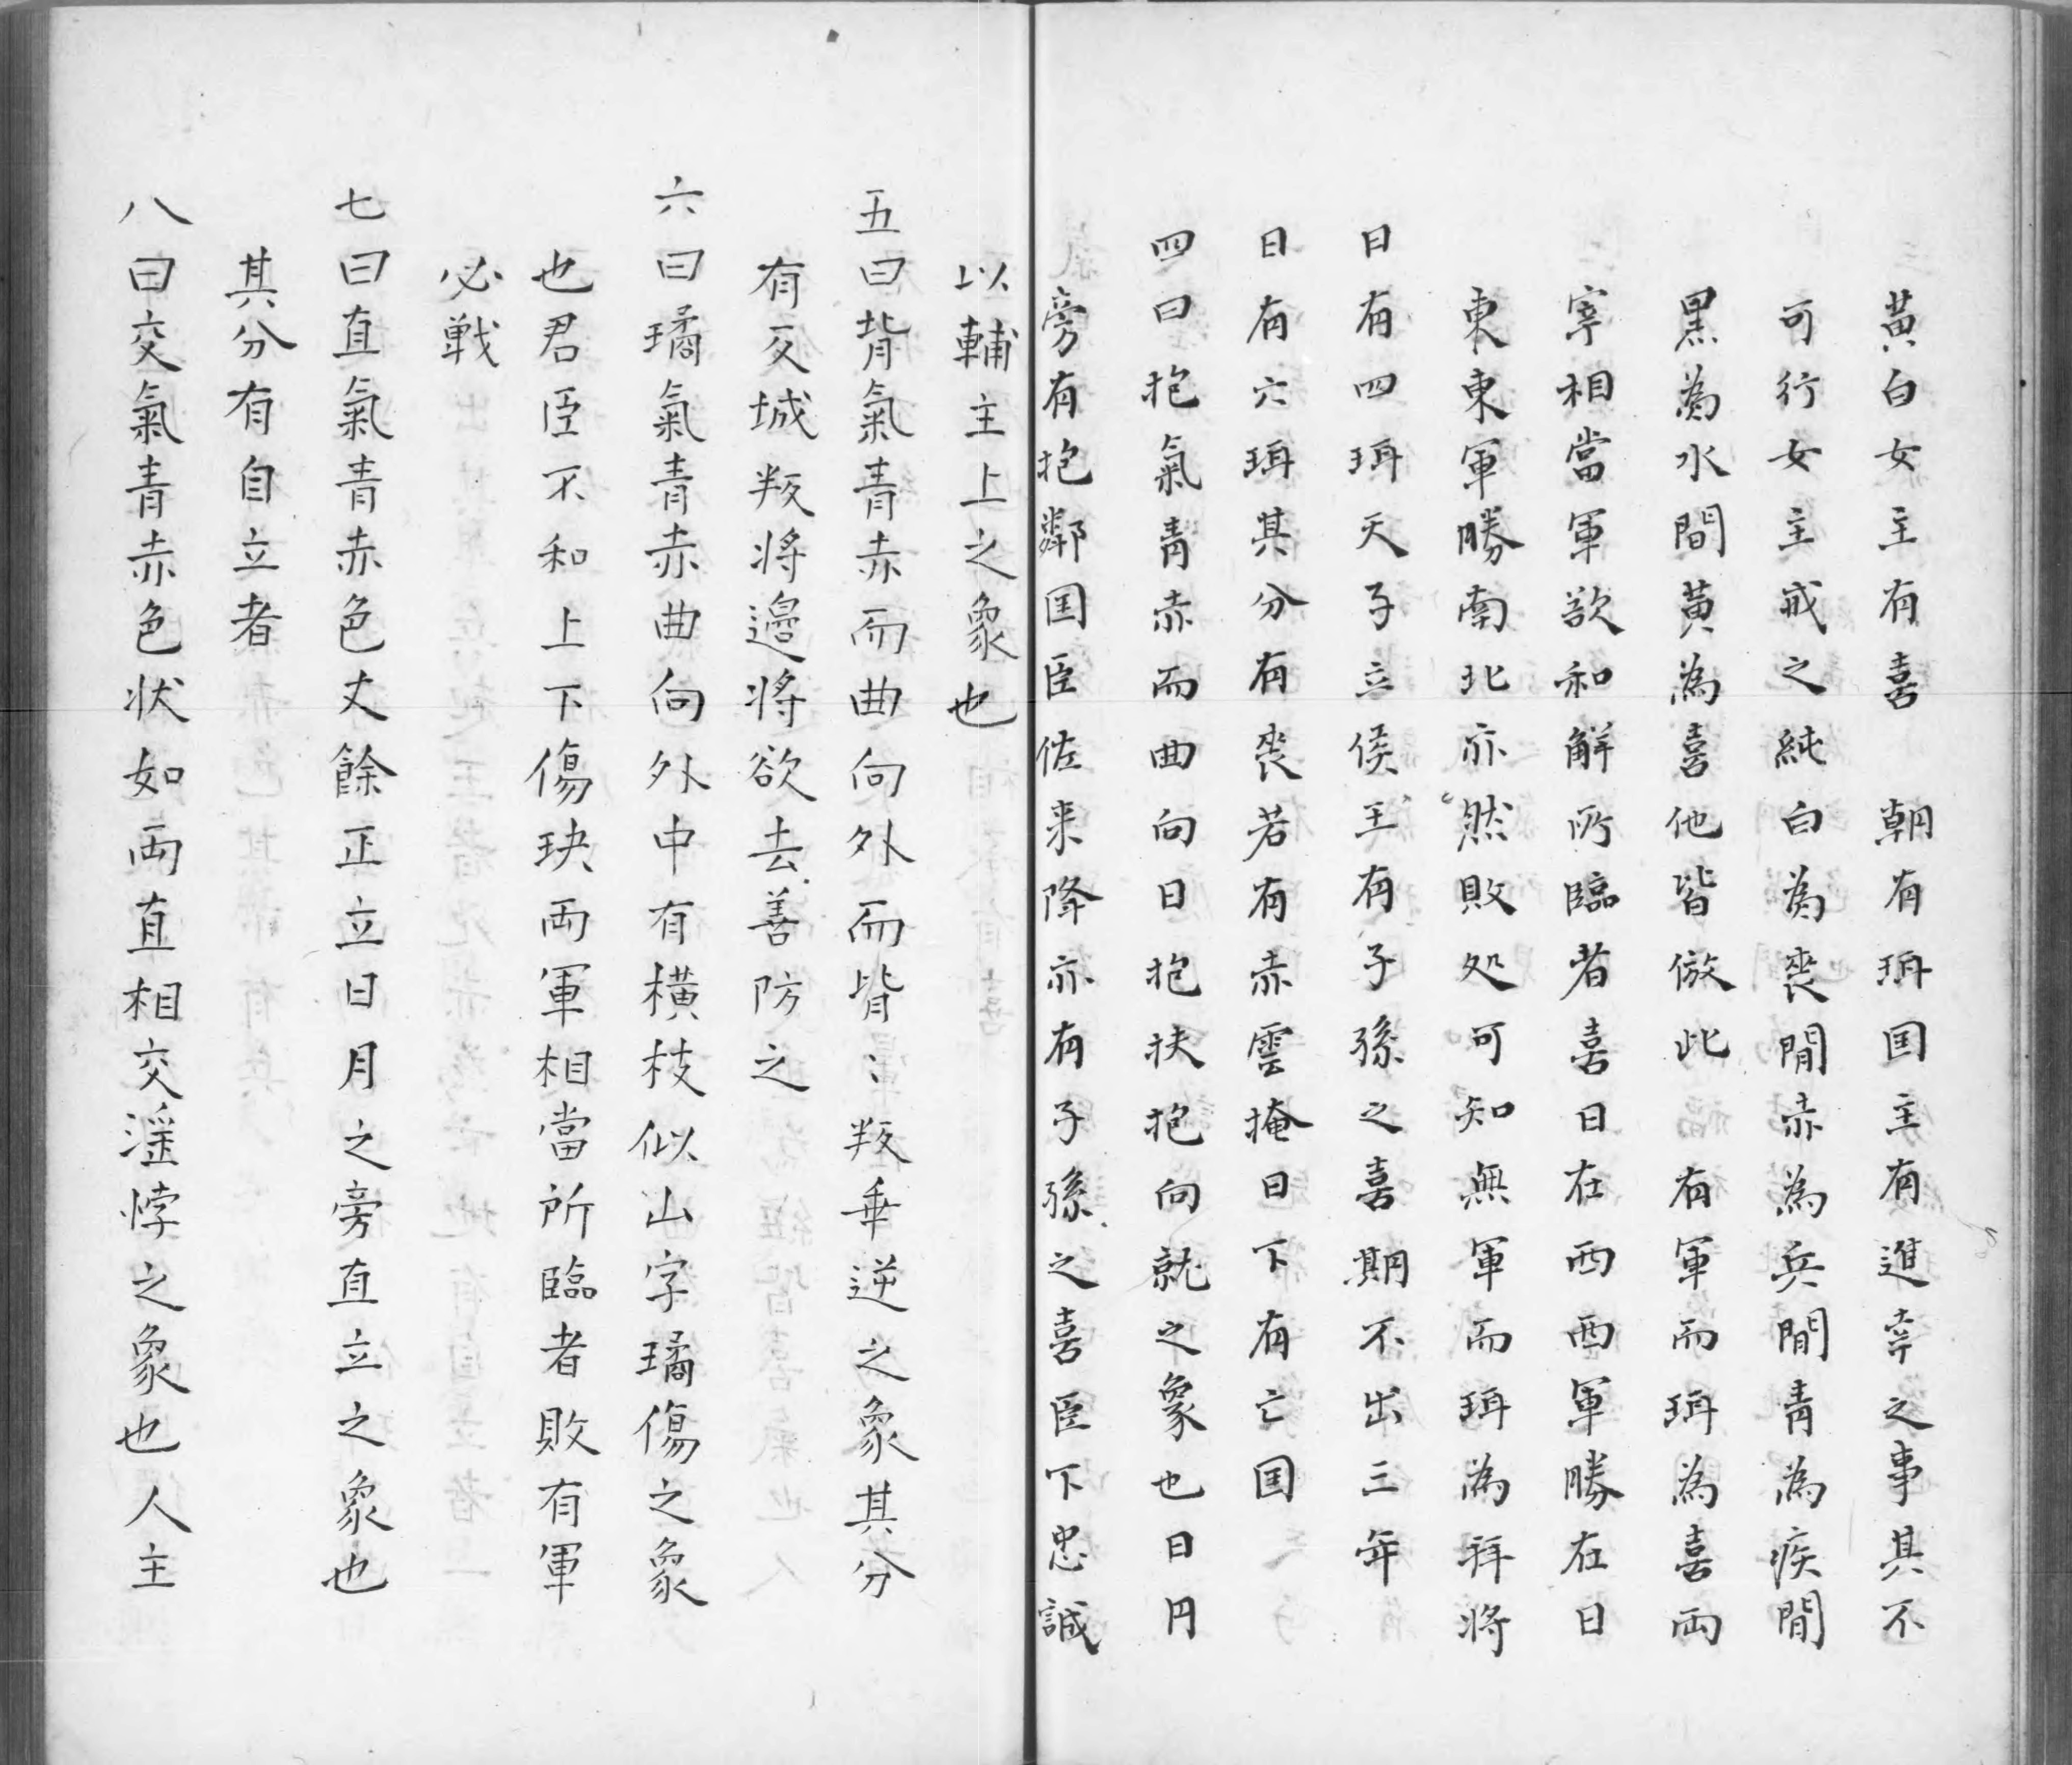 黄白女主有喜　朝有珥囯主有進幸之事其不
可行女主戒之純白為喪間赤為兵間青為疾間
黒為水間黄為喜他皆倣此　有軍而珥為喜両
宰相當軍欲和解所臨者喜日在西西軍勝在日
東東軍勝南北亦然敗処可知無軍而珥為拜将
日有四珥天子立侯王有子孫之喜期不出三年
日有六珥其分有喪若有赤雲掩日下有亡囯
四曰抱氣青赤而曲向日抱扶抱向就之象也日月
旁有抱鄰囯臣佐来降亦有子孫之喜臣下忠誠
以輔主上之象也
五曰背氣青赤而曲向外而背〻叛乖逆之象其分
有反城叛将邉将欲去善防之
六曰璚氣青赤曲向外中有横枝似山字璚傷之象
也君臣不和上下傷玦両軍相當所臨者敗有軍
必戦
七曰直氣青赤色丈餘正立日月之旁直立之象也
其分有自立者
八曰交氣青赤色状如両直相交滛悖之象也人主